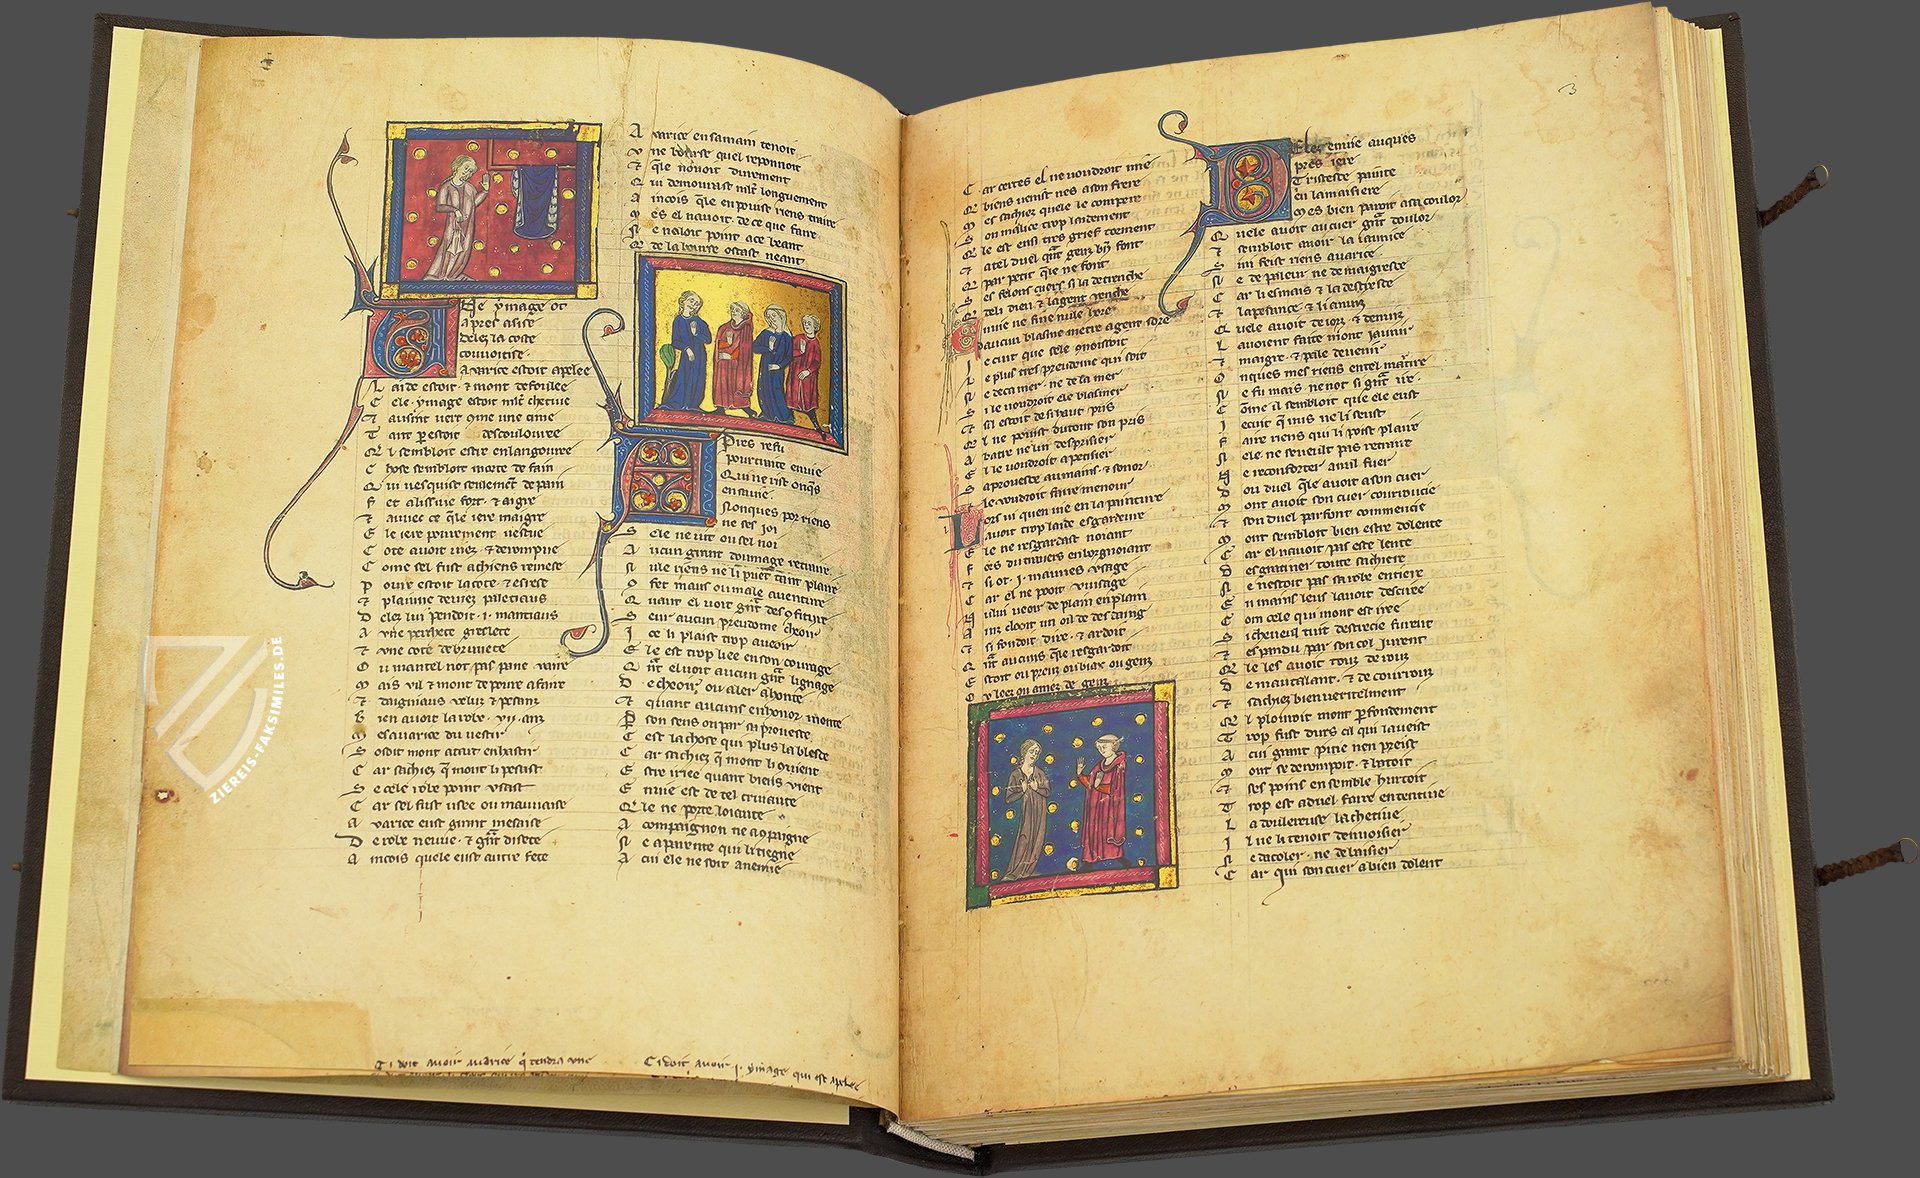 Ne ymage ot
apres assise
delez la coste
couuoitise
Auarice estoit apelee
Laide estoit ⁊ mont defoulee
Cele ymage estoit mlt chetiue
⁊ ausint uert ome une ciue
Tant p estoit descoulouree
Ql sembloit estre enlangouree
Chose sembloit morte de fain
Qui uesquist seulement de pain
Fet alissiue fort ⁊ aigre
⁊ auuec ce qele iere maigre
Ele iere pourement uestue
Cote auoit uiez ⁊ derompue
Come sel fust achiens remese
Poure estoit la cote ⁊ esrese
⁊ plainne deuiez paleciaus
Delez lui pendoit i mantiaus
A vne perchete greslete
⁊ vne cote de brunete
Ou mantel not pas pane uaire
Mais vil ⁊ mont de poure afaire
Daigniaus uelus ⁊ pesanz
Bien auoit la robe vii anz
Mes auarice du uestir
Car sachiez q mont li pesast
Se cele robe point vsast
Car sel fust usee ou mauuaise
Auarice eust grant mesaise
De robe neuue ⁊ gnt disete
Aincois quele eust autre fete
Auarice en sa main tenoit
Vne bourse quel reponnoit
⁊ qele nouoit durement
Qui demourast mlt longuement
Aincois qele en poust riens traire
Mes el nauoit de ce que faire
Ne naloit point a ce beant
Q de la bourse ostast neant
Pres refu
pourtraite enuie
Qui ne rist onqs
en sa uie
Nonques por riens
ne ses ioi
Sele ne uit ou sel noi
Aucun grant doumage retraire
Nule riens ne li puet tant plaire
Q fet maus ou male auenture
Quant el uoit gnt desconfiture
Seur aucun preudome cheoir
Ice li plaist trop a ueoir
Ele est trop liee en son courage
Qnt el uoit aucun gnt lignage
Decheoir ou aler a honte
⁊ quant aucuns en honor monte
Par son sens ou par sa proueste
Cest la chose qui plus la blesce
Car sachiez q mont li couient
Estre iriee quant biens vient
Enuie est de tel cruiaute
Qle ne porte loiaute
A compaignon ne a compaigne
Ne a parente qui li tiegne
A cui ele ne soit anemie
Ci doit auoir auarice q tendra vne
Ci doit auoir i ymage qui est apelee
3
Car certes el ne uoudroit mie
Q biens uenist nes a son frere
Mes sachiez quele le compere
Son malice trop laidement
Ele est en si tres grief torment
⁊ a tel duel qnt genz bn font
Par petit qele ne font
Ses felons cuers si la detrenche
Q deli dieu ⁊ la gent uenche
Enuie ne fine nule heure
Daucun blasme metre a gent sore
Ie cuit que sele conoissoit
Le plus tres preudome qui soit
Ne deca mer ne de la mer
Si le uoudroit ele blasmer
⁊ sil estoit de si haut pris
Ql ne poust du tout son pris
Batre ne lui desprisier
Ele uoudroit apetisier
Sa proueste au mains ⁊ sonor
Lors ui quen uie en la painture
Auoit trop laide esgardeure
Ele ne resgardast noiant
Fors du trauers en borgnoiant
Si ot i mauues vsage
Car el ne pooit v uisage
Nului ueoir de plain en plain
Ainz clooit un oil de desdaing
Si fondoit dire ⁊ ardoit
Qnt aucuns qele resgardoit
Estoit ou preuz ou biax ou genz
Ou loez ou amez de genz
Delez enuie auques
pres iere
Tristesce painte
en la maisiere
Mes bien paroit a sa coulor
Quele auoit au cuer gnt doulor
⁊ sembloit auoir la iaunice
Si ni feist riens auarice
Ne de paleur ne de maigresce
Car li esmais ⁊ la destresce
⁊ la pesance ⁊ li anuiz
Quele auoit de iorz ⁊ de nuiz
Lauoient faite mont iaunir
⁊ maigre ⁊ pale deuenir
Onques mes riens en tel martire
Ne fu mais ne not si gnt ire
Come il sembloit que ele eust
Ie cuit q nus ne li seust
Faire riens qui li poist plaire
Nele ne se ueult pas retraire
Ne reconforter a nul fuer
Dou duel qele auoit a son cuer
Mont auoit son cuer courroucie
⁊ son duel parfont commencie
Mont sembloit bien estre dolente
Car el nauoit pas este lente
Desgratiner toute sa chiere
Ne nestoit pas sa robe entiere
En mains leus lauoit desciree
Com cele qui mont est iree
Si cheueil tuit destrecie furent
⁊ espandu par son col iurent
Qle les auoit touz derouz
De mautalant ⁊ de courrouz
⁊ sachiez bien ueritelment
Ql plouroit mont pfondement
Trop fust durs cil qui la ueist
A cui grant pitie nen preist
Mont se derompoit ⁊ batoit
⁊ ses poins ensemble hurtoit
Trop est a duel faire ententiue
La doulereuse la chetiue
Il ne li tenoit denuoisier
Ne dacoler ne de baisier
Car qui son cuer a bien dolent
ZIEREIS-FAKSIMILES.DE